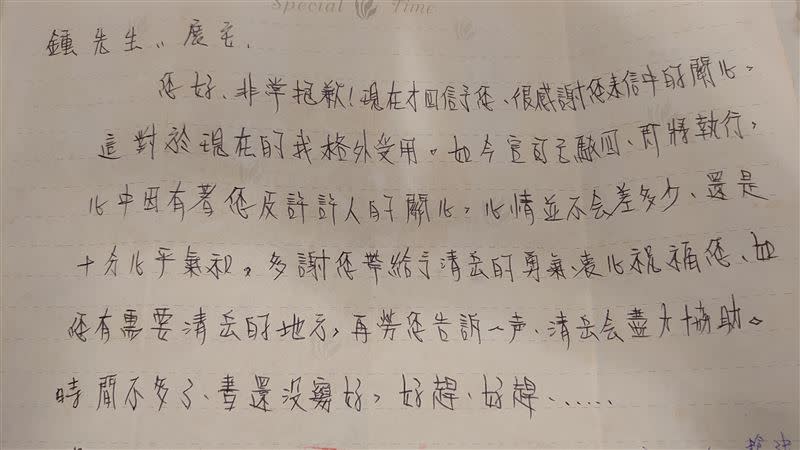 Special Time
鍾先生
您好、非常抱歉!現在才回信予您、很感謝您來信中的關心,
這對於現在的我格外受用。如今官司已駁回、即將執行,
心中因有著您及許許人的關心,心情並不会差多少、還是
十分心平氣和。多謝您帶給予清岳的勇氣、衷心祝福您、如
您有需要清岳的地方,再勞您告訴一声、清岳会盡力協助。
時間不多了、書還没寫好,好趕、好趕......